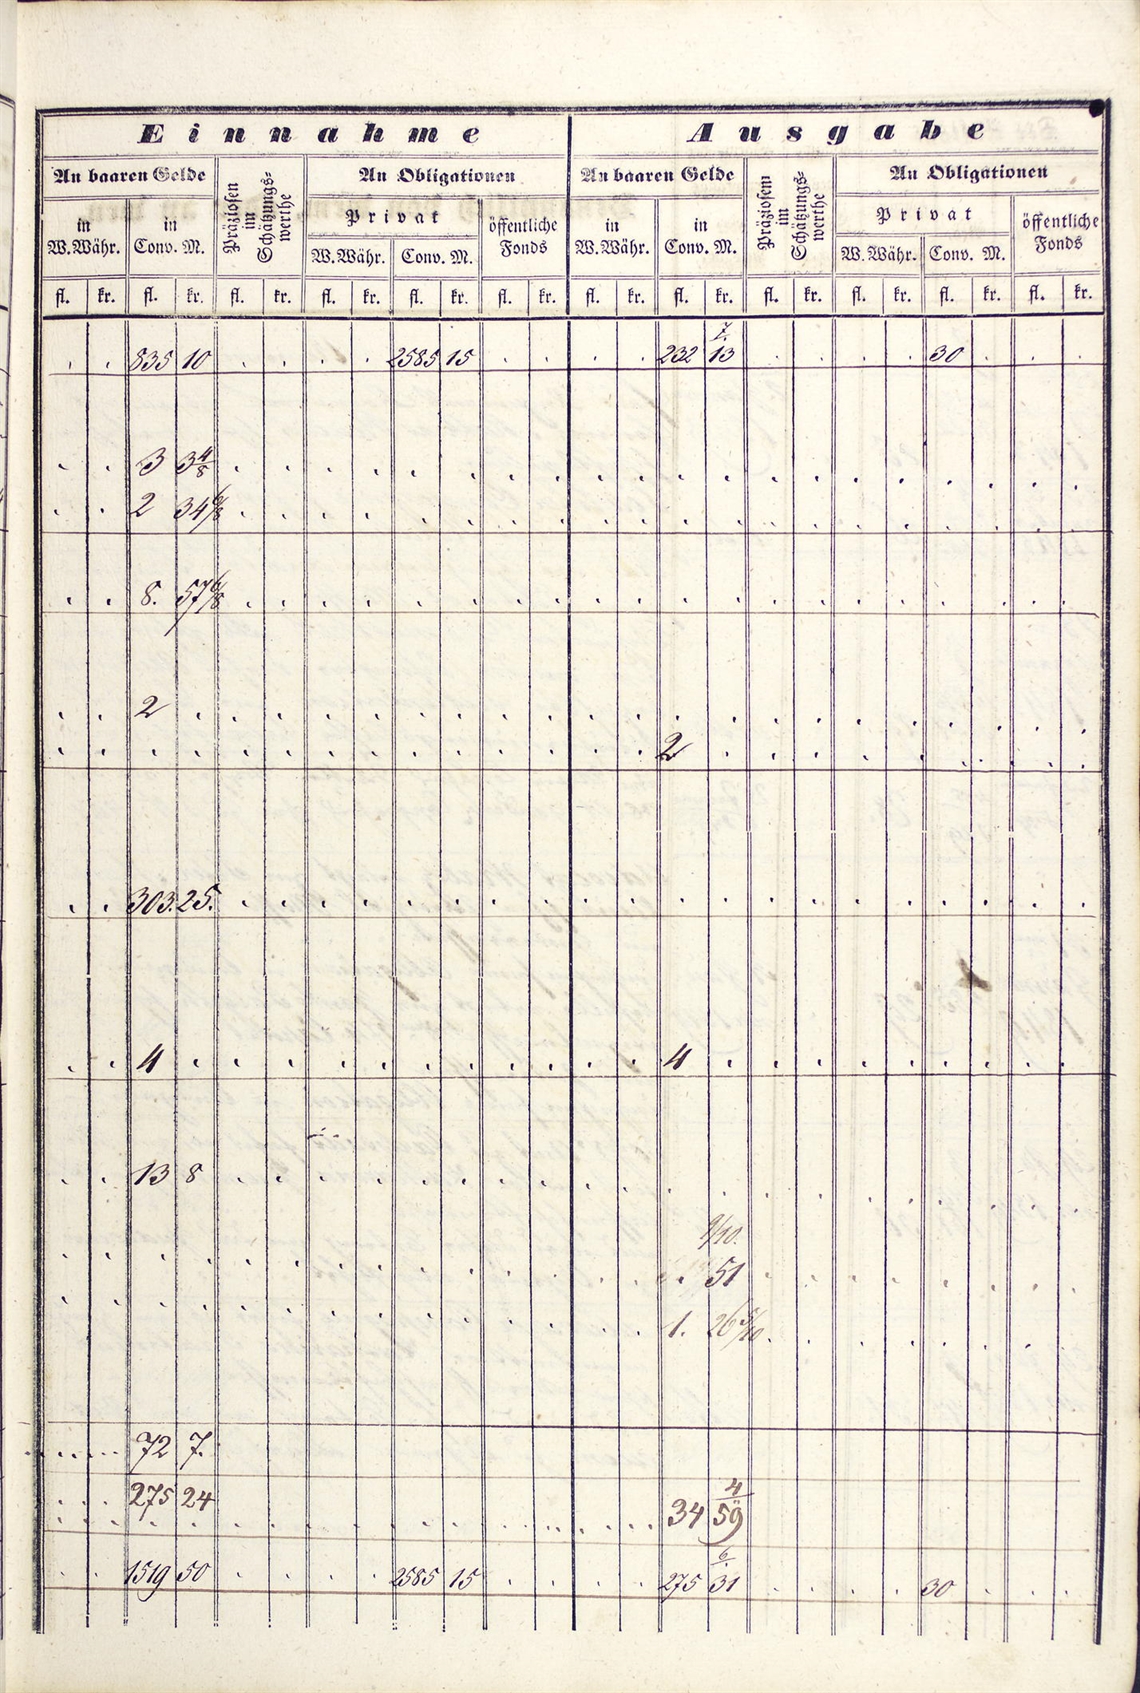 Einnahme Ausgabe
An baaren Gelde Präziosen im Schätzungs-werthe An Obligationen An baaren Gelde Präziosem im Schätzungs-werthe An Obligationen
in W. Währ. in Conv. M. Privat öffentliche Fonds in W. Währ. in Conv. M. Privat öffentliche Fonds
W. Währ. Conv. M. W. Währ. Conv. M.
fl. kr. fl. kr. fl. kr. fl. kr. fl. kr. fl. kr. fl. kr. fl. kr. fl. kr. fl. kr. fl. kr. fl. kr.
835 10 2585 15 232 13 30
3 3 4/8
2 34 6/8
8. 57 6/8
2
2
303. 25.
4 4
13 8
9/10.
51
1. 26 5/10
72 7.
275 24
34 4/59
1519 50 2585 15 275 6/31 30